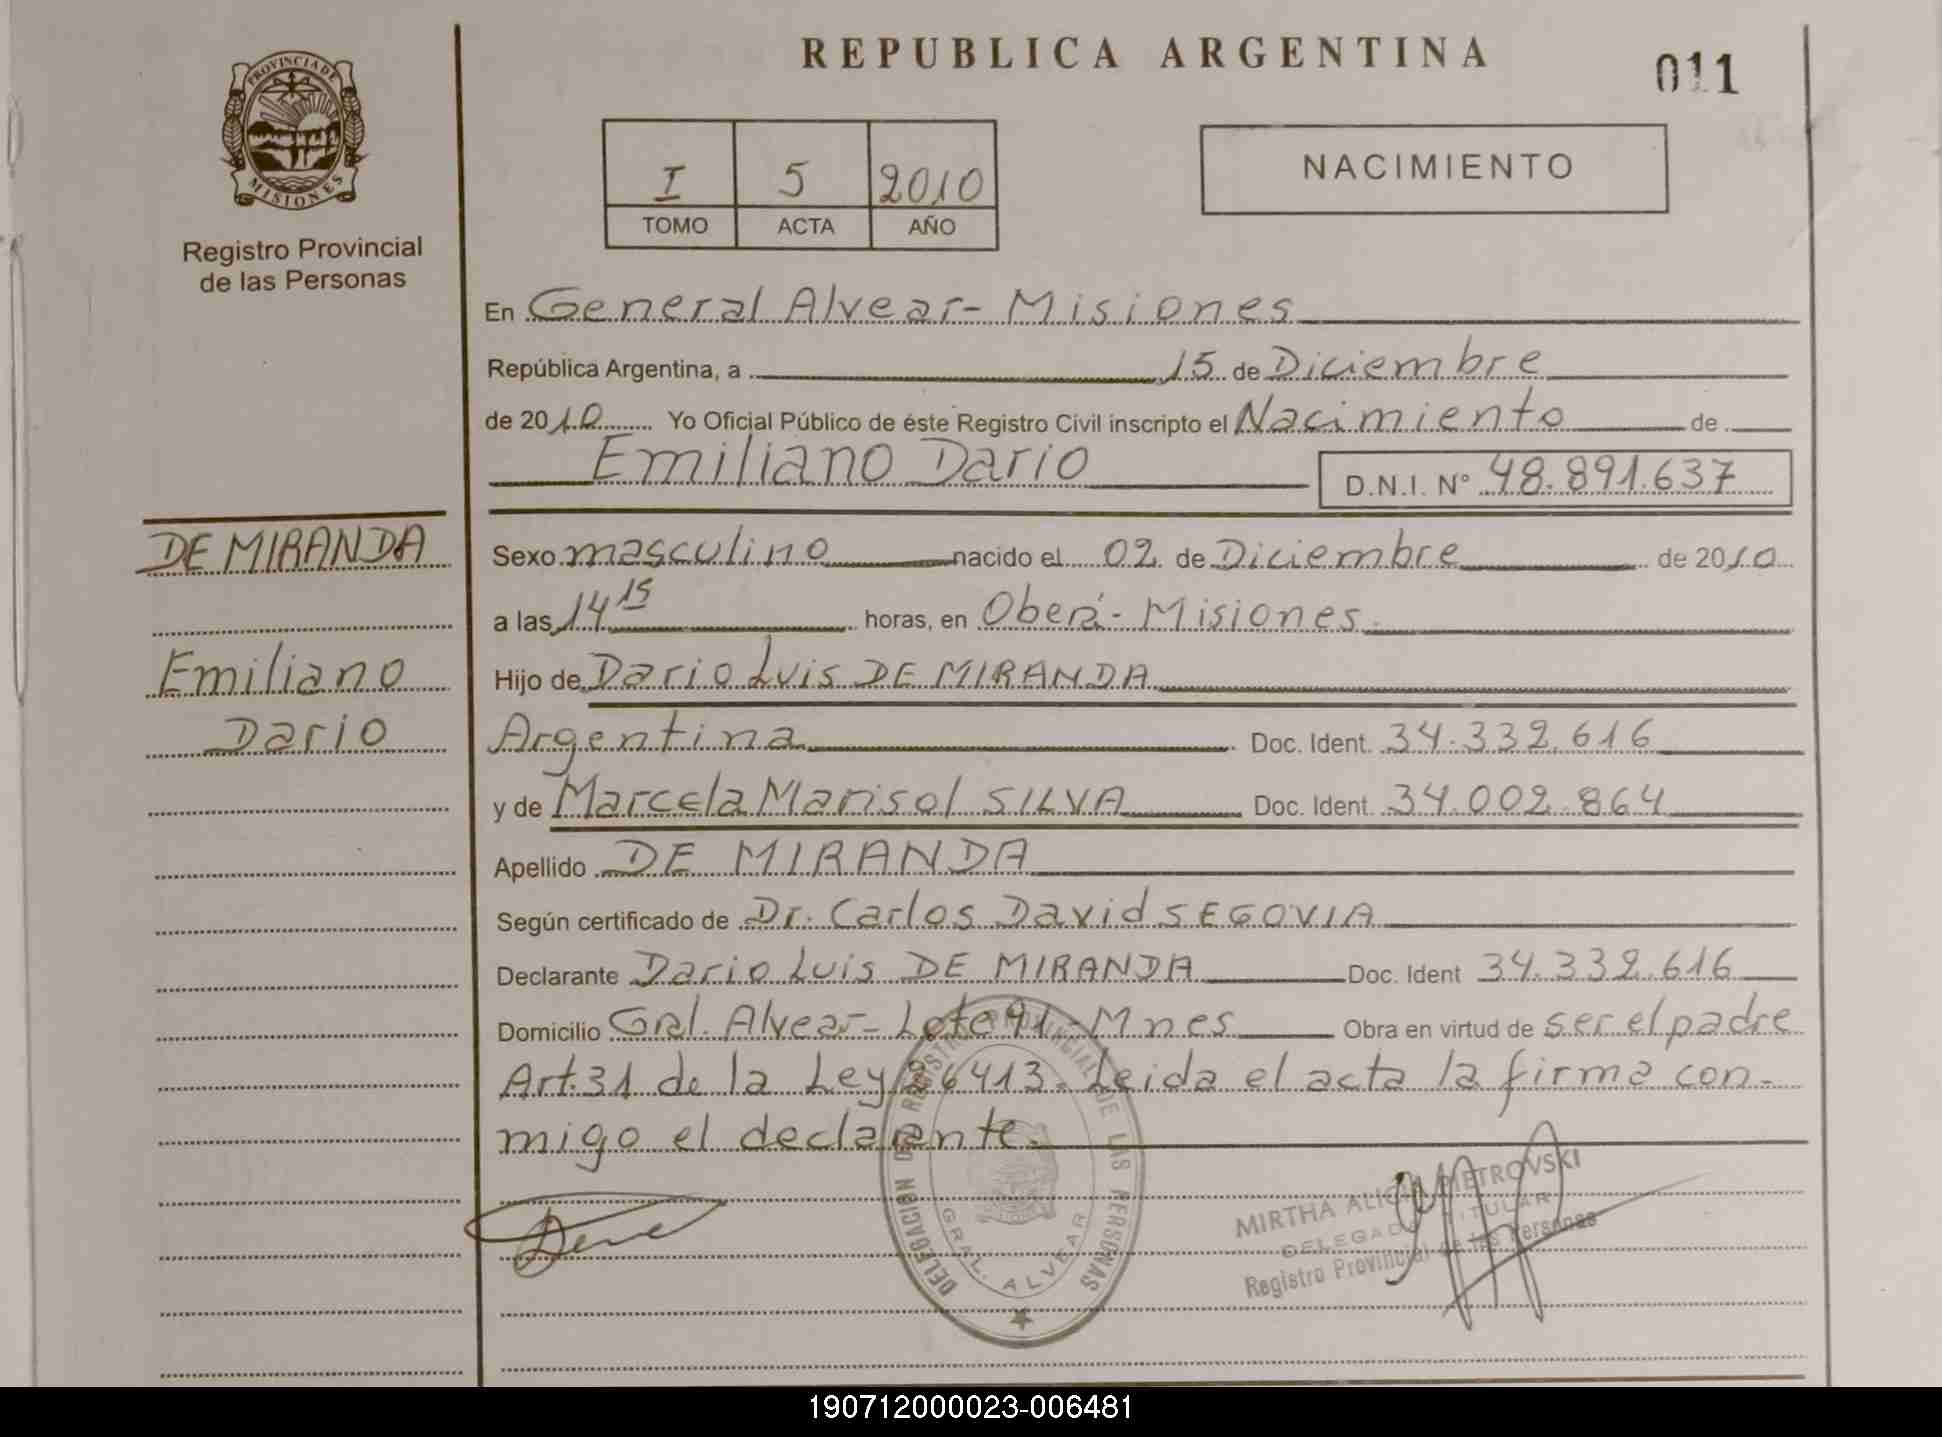 REPUBLICA ARGENTINA
011
PROVINCIA DE MISIONES
Registro Provincial
de las Personas
I 5 2010
TOMO ACTA AÑO
NACIMIENTO
En General Alvear - Misiones
República Argentina, a 15 de Diciembre
de 2010 Yo Oficial Público de éste Registro Civil inscripto el Nacimiento de
Emiliano Dario D.N.I. Nº 48.891.637
DE MIRANDA
Emiliano
Dario
Sexo masculino nacido el 02 de Diciembre de 2010
a las 14 15 horas, en Oberá - Misiones.
Hijo de Dario Luis DE MIRANDA
Argentina Doc. Ident. 34.332.616
y de Marcela Marisol SILVA Doc. Ident. 34.002.864
Apellido DE MIRANDA
Según certificado de Dr. Carlos David SEGOVIA
Declarante Dario Luis DE MIRANDA Doc. Ident 34.332.616
Domicilio Gral. Alvear - Lote 91 - Mnes Obra en virtud de ser el padre
Art. 31 de la Ley 26413. Leida el acta la firma con-
migo el declarante.
DELEGACION DEL REGISTRO PROVINCIAL DE LAS PERSONAS
GRAL. ALVEAR
MIRTHA ALICIA PIETROVSKI
DELEGADA TITULAR
Registro Provincial de las Personas
190712000023-006481